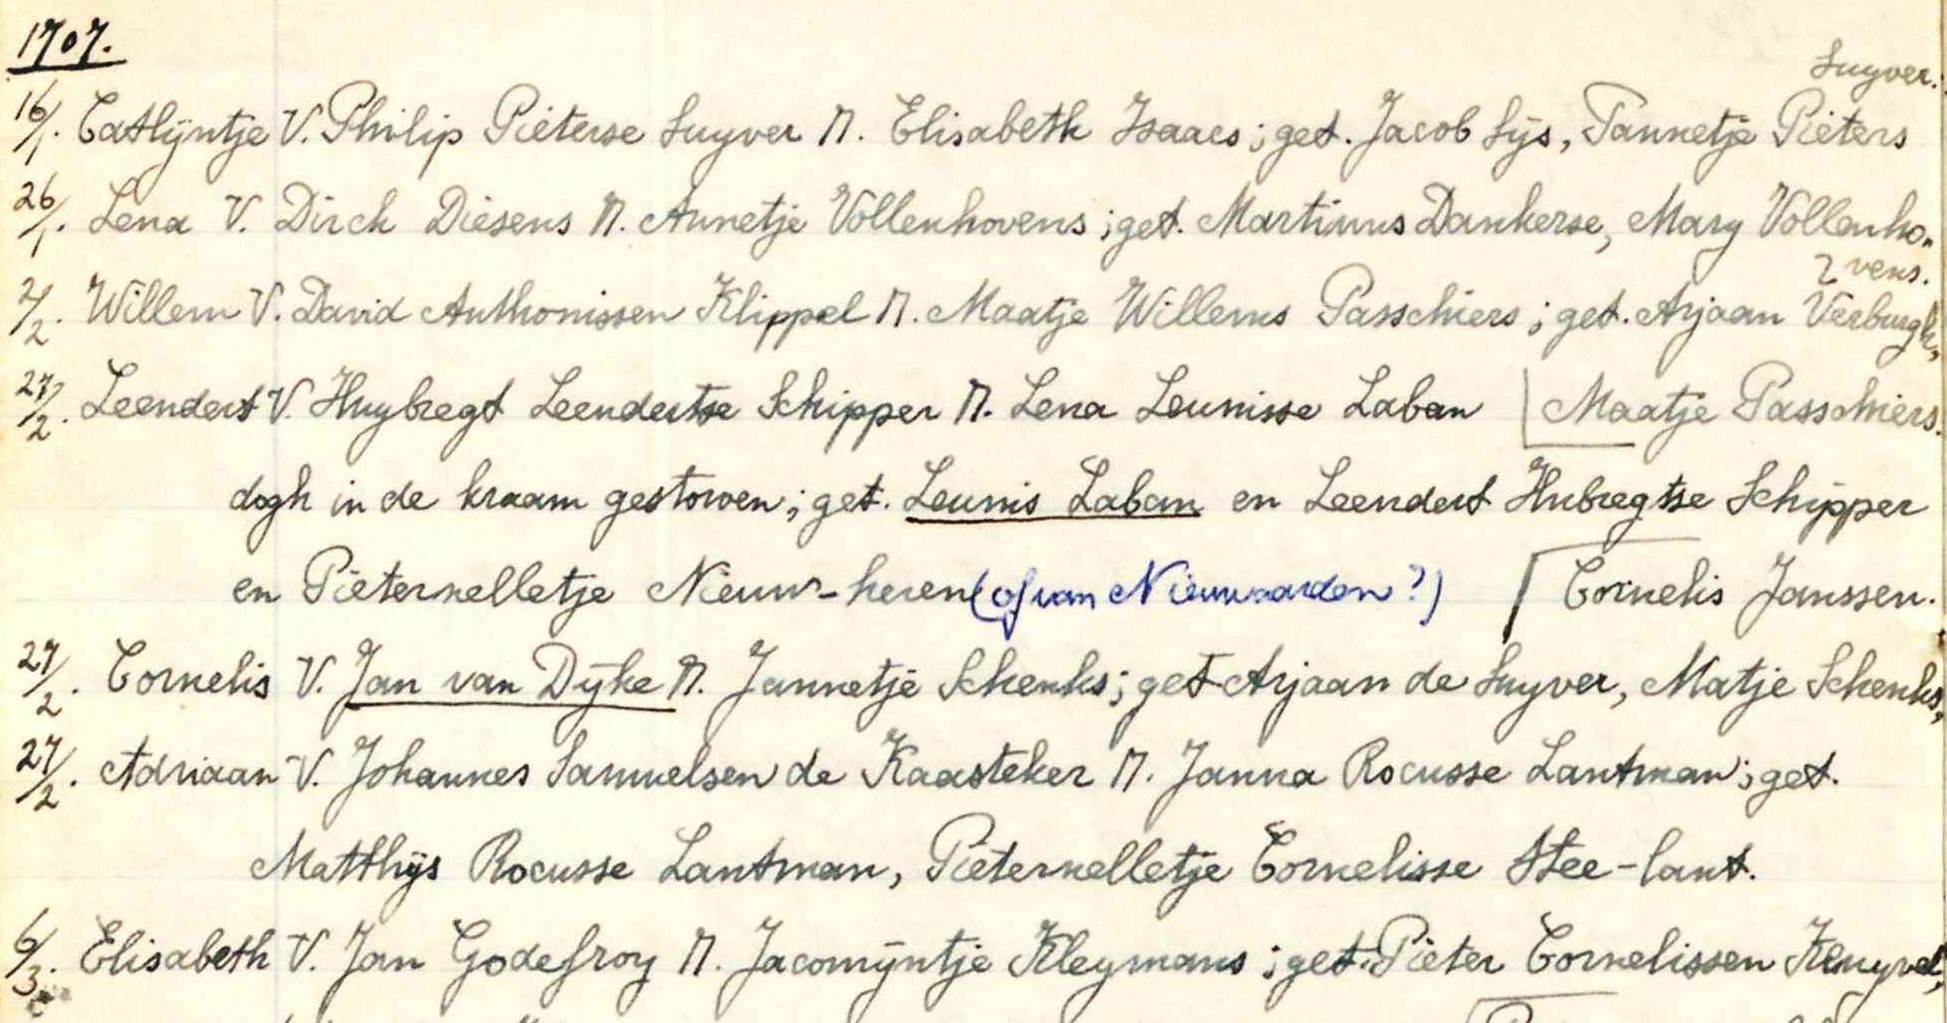 1707.
Suyver.
16/1. Cathlijntje V. Philip Pieterse Suyver M. Elisabeth Isaacs; get. Jacob Sijs, Tannetje Pieters
26/1. Lena V. Dirck Diesens M. Annetje Vollenhovens; get. Martinus Dankerse, Mary Vollenho-
vens.
2/2. Willem V. David Anthonissen Klippel M. Maatje Willems Passchiers; get. Arjaan Verburgh,
27/2. Leendert V. Huybregt Leendertse Schipper M. Lena Leunisse Laban [Maatje Passchiers.
dogh in de kraam gestorven; get. Leunis Laban en Leendert Hubregtse Schipper
en Pieternelletje Nieuw-heren (of van Nieuwaarden?) [Cornelis Janssen.
27/2. Cornelis V. Jan van Dijke M. Jannetje Schenks; get Arjaan de Suyver, Matje Schenks,
27/2. Adriaan V. Johannes Samuelsen de Kaasteker M. Janna Rocusse Lantman; get.
Matthijs Rocusse Lantman, Pieternelletje Cornelisse Stee-lant.
6/3. Elisabeth V. Jan Godefroy M. Jacomijntje Kleymans; get. Pieter Cornelissen